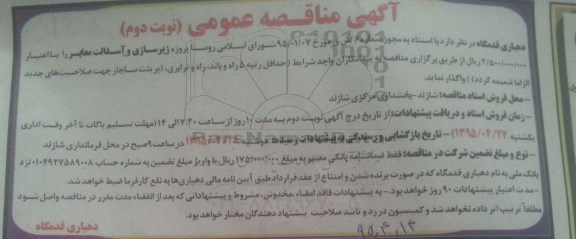 آگهی مناقصه عمومی (نوبت دوم)
دهیاری قدمگاه در نظر دارد با استناد به مجوز شماره ۶ ش ق مورخ ۹۵/۰۱/۰۷ شورای اسلامی روستا پروژه زیرسازی و آسفالت معابر را با اعتبار
۲/۵۰۰/۰۰۰/۰۰۰ ریال از طریق برگزاری مناقصه به پیمانکاران واجد شرایط (حداقل رتبه ۵ راه و باند، راه و ترابری، (پرینت ساجار جهت صلاحیت های جدید
الزاما ضمیمه گردد)) واگذار نماید.
-محل فروش اسناد مناقصه: شازند-بخشداری مرکزی شازند
-زمان فروش اسناد و دریافت پیشنهادات: از تاریخ درج آگهی نوبت دوم به مدت ۱۰ روز از ساعت ۷:۳۰ الی ۱۴ (مهلت تسلیم پاکات تا آخر وقت اداری
یکشنبه ۱۳۹۵/۰۴/۲۷) -تاریخ بازگشایی و رسیدگی به پیشنهادات رسیده: در ساعت ۹ صبح در محل فرمانداری شازند
-نوع و مبلغ تضمین شرکت در مناقصه: فقط ضمانتنامه بانکی معتبر به مبلغ ۱۷۵/۰۰۰/۰۰۰ ریال یا واریز مبلغ تضمین به شماره حساب ۰۱۰۴۹۳۷۵۸۹۰۰۸ نزد
بانک ملی به نام دهیاری قدمگاه که در صورت برنده شدن و امتناع از عقد قرارداد طبق آیین نامه مالی دهیاری ها به نفع کارفرما ضبط خواهد شد.
-مدت اعتبار پیشنهادات ۹۰ روز خواهد بود.- به پیشنهادات فاقد امضاء، مخدوش، مشروط و پیشنهاداتی که بعد از انقضاء مدت مقرر در مناقصه واصل شود
مطلقا ترتیب اثر داده نخواهد شد و کمیسیون در رد و تایید صلاحیت پیشنهاد دهندگان مختار خواهد بود.
دهیاری قدمگاه
۹۵،۴،۱۳